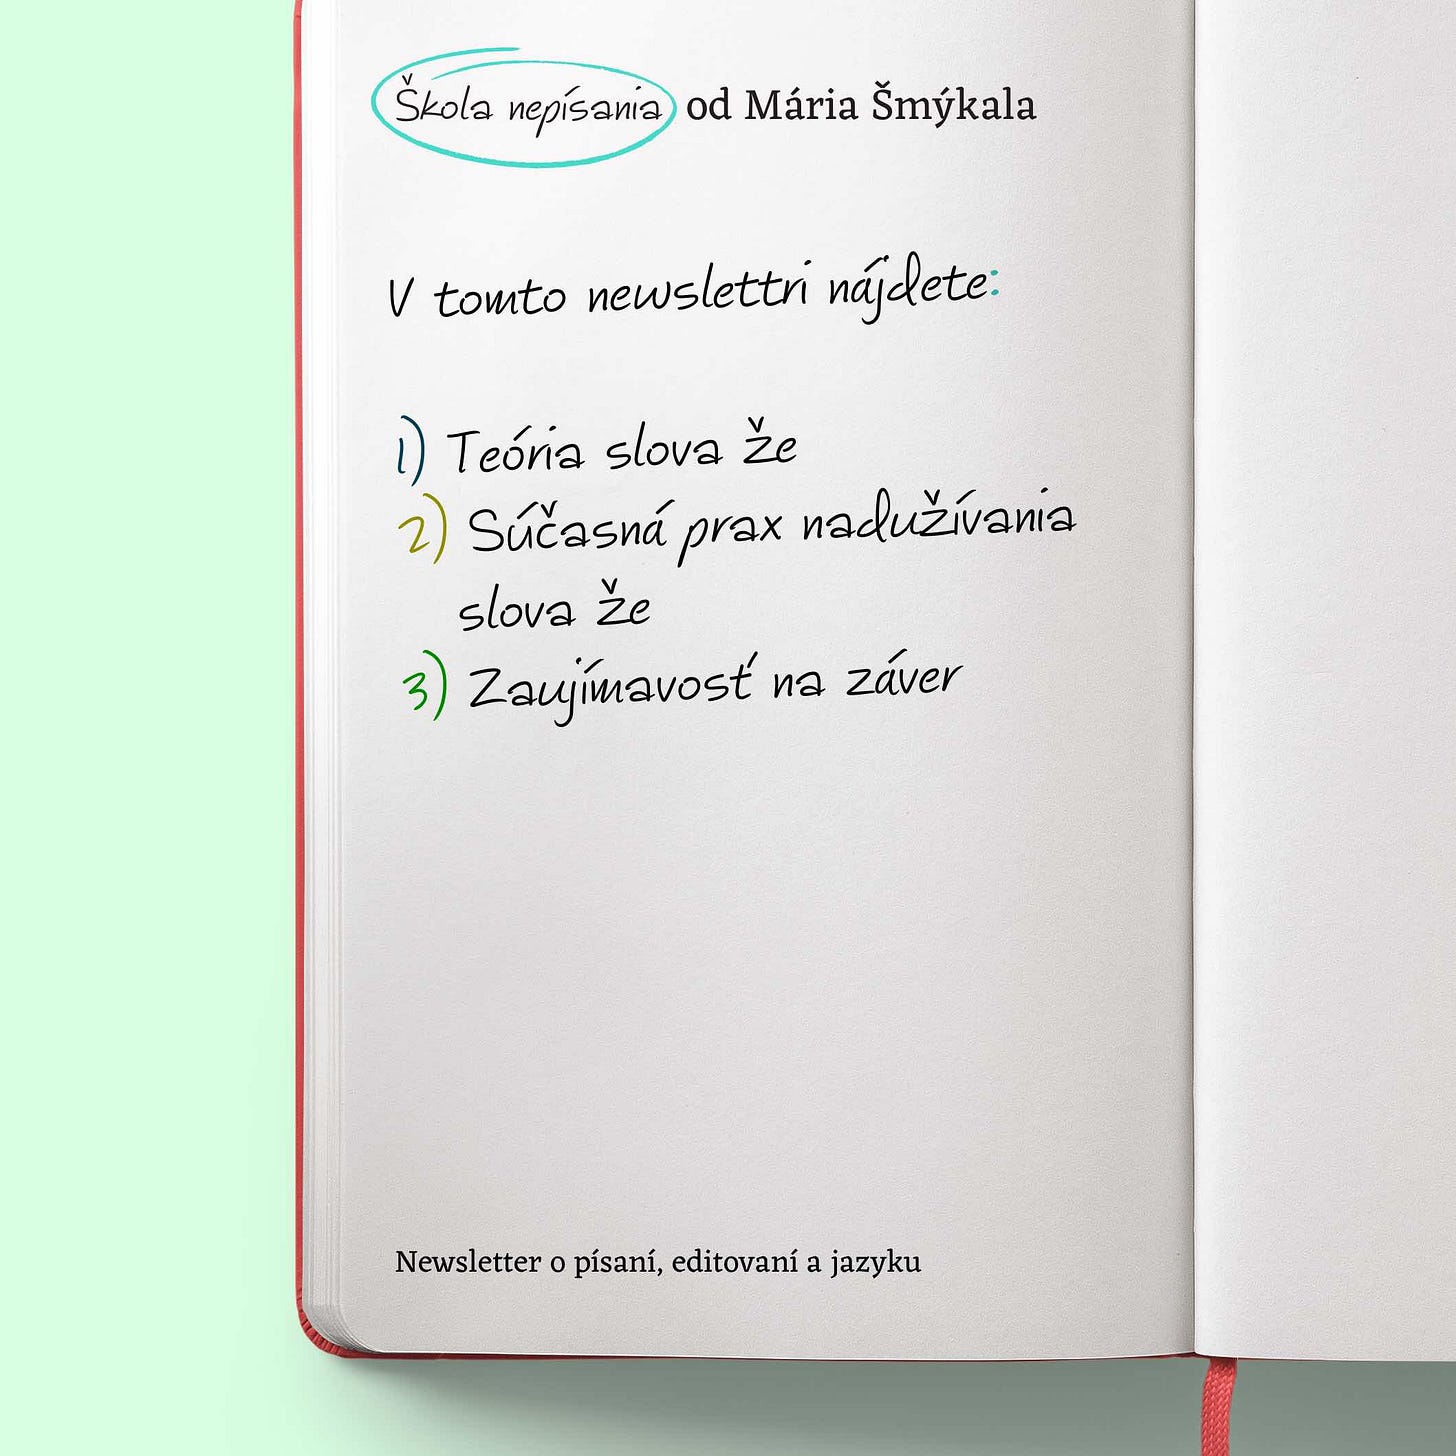 Škola nepísania od Mária Šmýkala
V tomto newslettri nájdete:
1) Teória slova že
2) Súčasná prax nadužívania
slova že
3) Zaujímavosť na záver
Newsletter o písaní, editovaní a jazyku